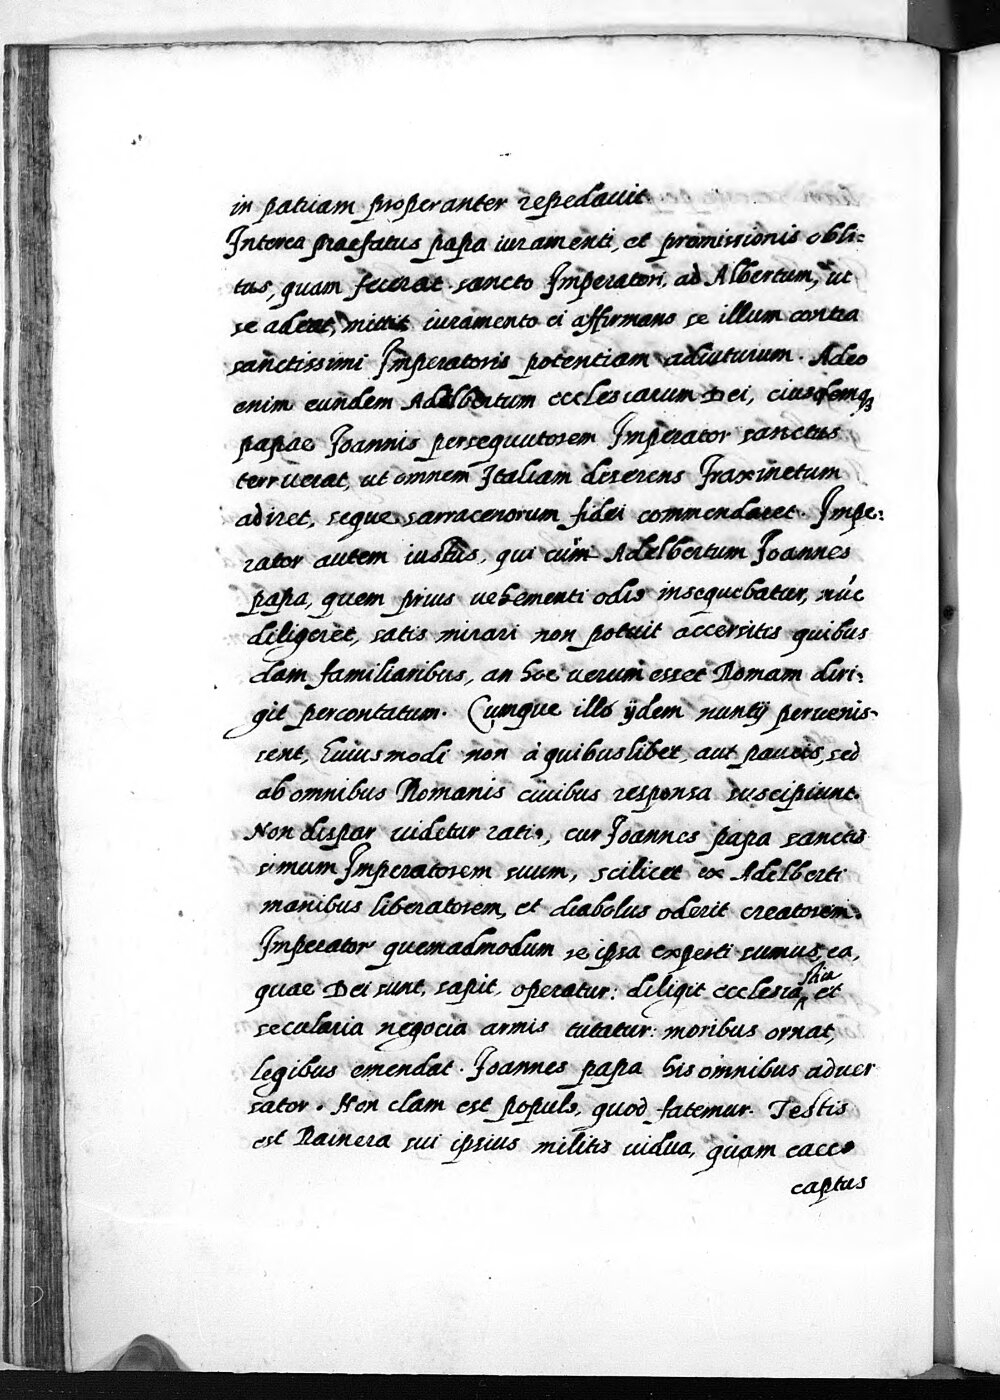 in patriam properanter repedauit
Interea praefatus papa iuramenti, et promissionis obli-
tus, quam fecerat sancto Imperatori, ad Albertum, ut
se adeat, mittit iuramento ei affirmans se illum contra
sanctissimi Imperatoris potentiam adiuturum. Adeo
enim eundem Adelbertum ecclesiarum Dei, eiusdemq3
papae Joannis persequutorem Imperator sanctus
terruerat, ut omnem Italiam deserens Fraxinetum
adiret, seque sarracenorum fidei commendaret. Impe:
rator autem iustus, qui cùm Adelbertum Joannes
papa, quem prius uehementi odio insequebatur, nūc
diligeret, satis mirari non potuit accersitis quibus
dam familiaribus, an hoc uerum esset Romam diri:
git percontatum. Cumque illò ijdem nuntij peruenis-
sent, huiusmodi non à quibuslibet, aut paucis, sed
ab omnibus Romanis ciuibus responsa suscipiunt.
Non dispar uidetur ratio, cur Joannes papa sanctis
simum Imperatorem suum, scilicet ex Adelberti
manibus liberatorem, et diabolus oderit creatorem.
Imperator quemadmodum re ipsa experti sumus, ea,
quae Dei sunt, sapit, operatur: diligit ecclesia^stica et
secularia negocia armis tutatur: moribus ornat,
legibus emendat. Joannes papa his omnibus aduer
sator. Non clam est populo, quod fatemur. Testis
est Rainera sui ipsius militis uidua, quam caeco
captus